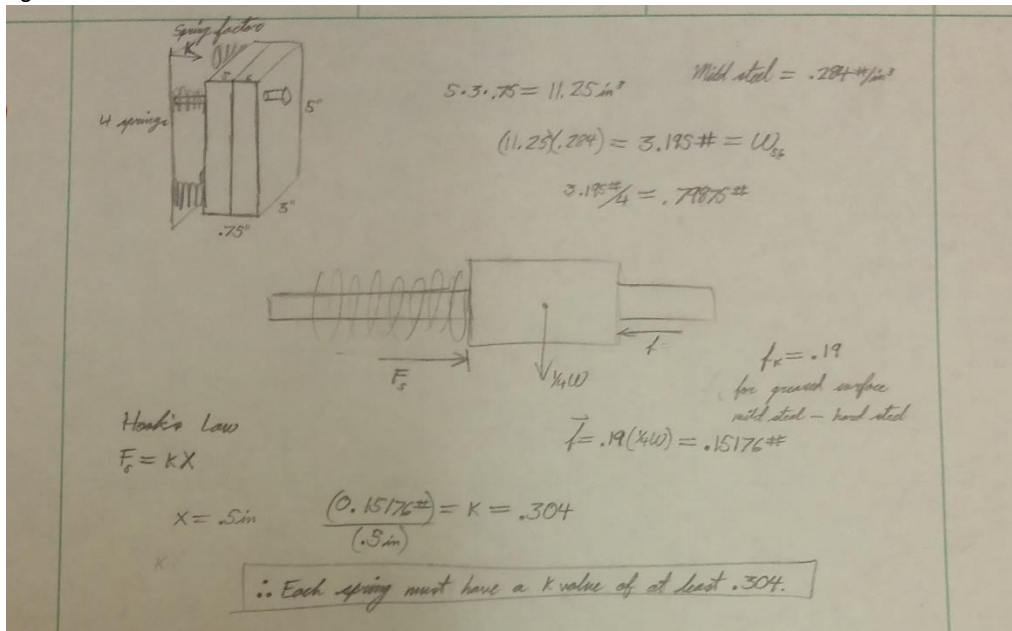 Spring factor
K
4 springs
5"
3"
.75"
5·3·.75 = 11.25 in³
Mild steel = .284 #/in³
(11.25)(.284) = 3.195# = W
3.195#/4 = .79875#
F_s
¼W
f
f_k = .19
for greased surface
mild steel – hard steel
f = .19(¼W) = .15176#
Hook's Law
F_s = KX
X = .5in
(0.15176#)/(.5in) = K = .304
K
∴ Each spring must have a K value of at least .304.